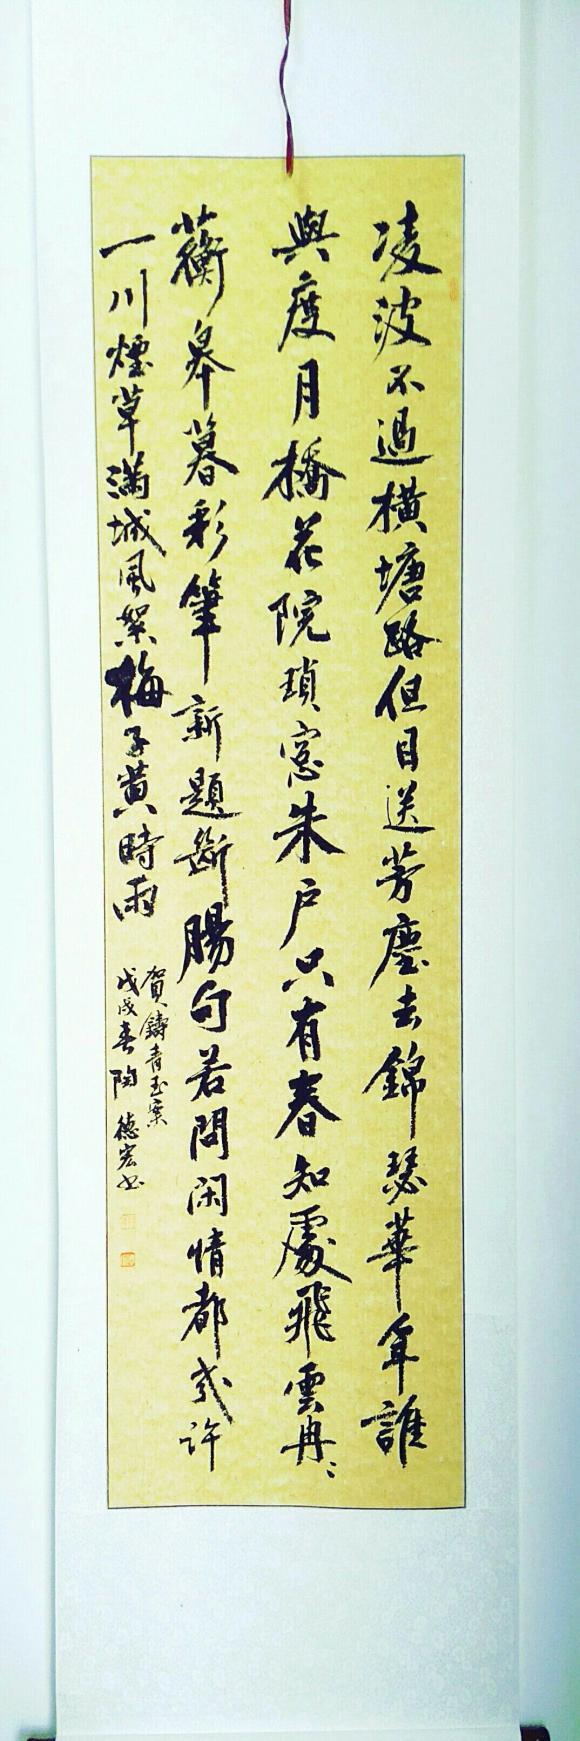 凌波不過橫塘路但目送芳塵去錦瑟華年誰
與度月橋花院瑣窓朱戶只有春知處飛雲冉〻
蘅皋暮彩筆新題斷腸句若問閑情都幾許
一川煙草滿城風絮梅子黃時雨
賀鑄青玉案
戊戌春陶德宏书